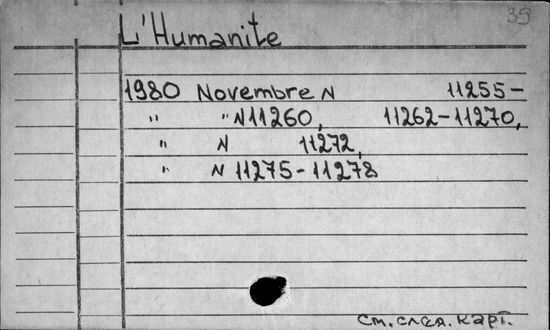 39
L'Humanite
1980 Novembre N 11255-
" " N 11260, 11262-11270,
" N 11272,
" N 11275-11278
См. след. карт.